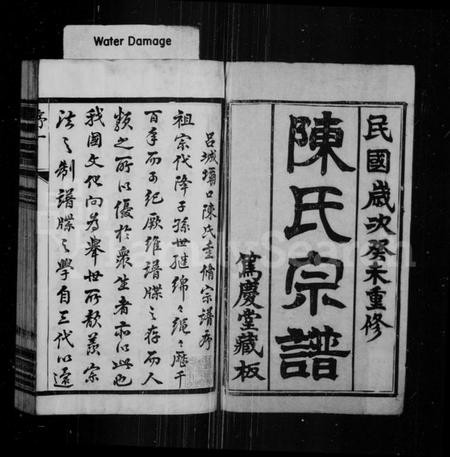 Water Damage
民國歲次癸未重修
陳氏宗譜
篤慶堂藏板
呂城壩口陳氏重修宗譜序
祖宗代降子孫世繼綿々繩々歷千
百年而可紀厥維譜牒之存而人
類之所以優於眾生者亦以此也
我國文化向為舉世所欽羨宗
法之制譜牒之學自三代以還
序 一